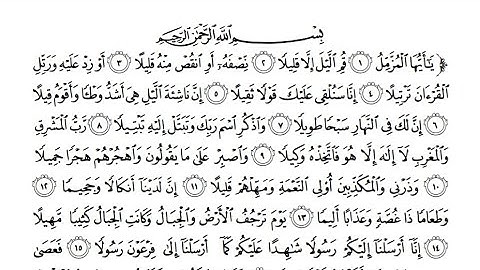 بِسْمِ اللَّهِ الرَّحْمَٰنِ الرَّحِيمِ
﴿ يَٰٓأَيُّهَا الْمُزَّمِّلُ ١ قُمِ الَّيْلَ إِلَّا قَلِيلًا ٢ نِّصْفَهُۥٓ أَوِ انقُصْ مِنْهُ قَلِيلًا ٣ أَوْ زِدْ عَلَيْهِ وَرَتِّلِ
الْقُرْءَانَ تَرْتِيلًا ٤ إِنَّا سَنُلْقِي عَلَيْكَ قَوْلًا ثَقِيلًا ٥ إِنَّ نَاشِئَةَ الَّيْلِ هِيَ أَشَدُّ وَطْـًٔا وَأَقْوَمُ قِيلًا
٦ إِنَّ لَكَ فِي النَّهَارِ سَبْحًا طَوِيلًا ٧ وَاذْكُرِ اسْمَ رَبِّكَ وَتَبَتَّلْ إِلَيْهِ تَبْتِيلًا ٨ رَّبُّ الْمَشْرِقِ
وَالْمَغْرِبِ لَآ إِلَٰهَ إِلَّا هُوَ فَاتَّخِذْهُ وَكِيلًا ٩ وَاصْبِرْ عَلَىٰ مَا يَقُولُونَ وَاهْجُرْهُمْ هَجْرًا جَمِيلًا
١٠ وَذَرْنِي وَالْمُكَذِّبِينَ أُو۟لِي النَّعْمَةِ وَمَهِّلْهُمْ قَلِيلًا ١١ إِنَّ لَدَيْنَآ أَنكَالًا وَجَحِيمًا ١٢
وَطَعَامًا ذَا غُصَّةٍ وَعَذَابًا أَلِيمًا ١٣ يَوْمَ تَرْجُفُ الْأَرْضُ وَالْجِبَالُ وَكَانَتِ الْجِبَالُ كَثِيبًا مَّهِيلًا
١٤ إِنَّآ أَرْسَلْنَآ إِلَيْكُمْ رَسُولًا شَٰهِدًا عَلَيْكُمْ كَمَآ أَرْسَلْنَآ إِلَىٰ فِرْعَوْنَ رَسُولًا ١٥ فَعَصَىٰ